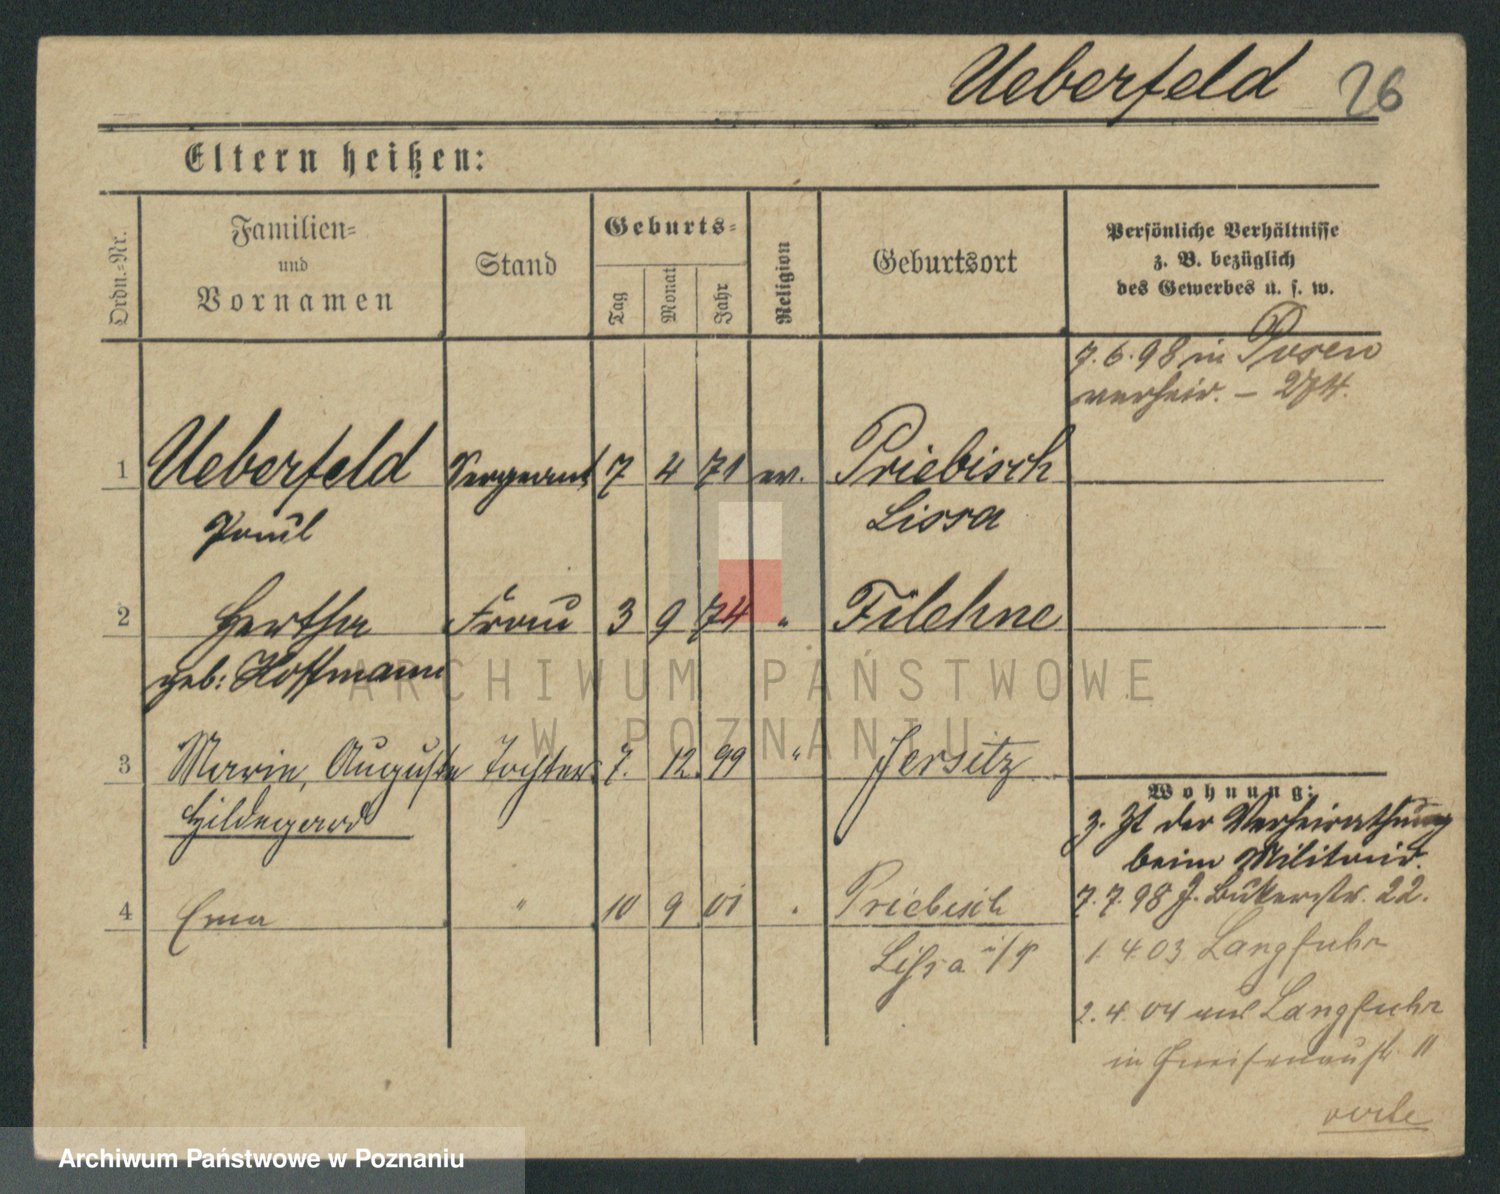 Ueberfeld 26
Eltern heißen:
Ordn.=Nr.
Familien=
und
Vornamen
Stand
Geburts=
Tag
Monat
Jahr
Religion
Geburtsort
Persönliche Verhältnisse
z. B. bezüglich
des Gewerbes u. s. w.
7.6.98 in Posen
verheir. – 274.
1 Ueberfeld Sergeant 7 4 71 ev. Priebisch
Paul Lissa
2 Hertha Frau 3 9 74 " Filehne
geb: Hoffmann
3 Marie, Auguste Tochter 7. 12. 99 " Jersitz
Hildegard
Wohnung:
z. Zt der Verheirathung
beim Militair.
4 Erna " 10 9 01 " Priebisch
Lissa i/P
7.7.98 J. Bukerstr. 22.
1 4 03 Langfuhr
2. 4. 04 aus Langfuhr
in Gneisenaustr. 11
verte
ARCHIWUM PAŃSTWOWE
W POZNANIU
Archiwum Państwowe w Poznaniu